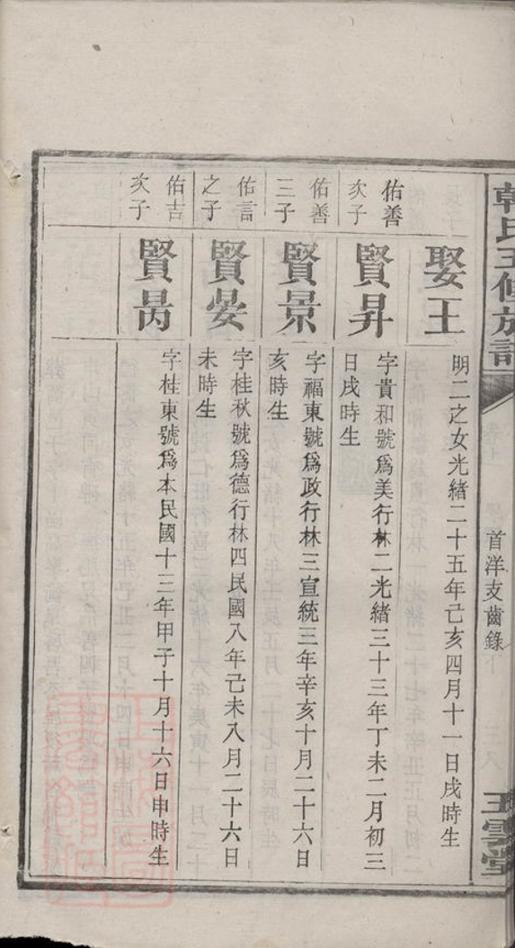 韓氏五修族譜
首洋支齒錄
五雲堂
娶王
明二之女光緒二十五年己亥四月十一日戌時生
佑善次子
賢昇
字貴和號為美行林二光緒三十三年丁未二月初三
日戌時生
佑善三子
賢景
字福東號為政行林三宣統三年辛亥十月二十六日
亥時生
佑言之子
賢晏
字桂秋號為德行林四民國八年己未八月二十六日
未時生
佑吉次子
賢昺
字桂東號為本民國十三年甲子十月十六日申時生